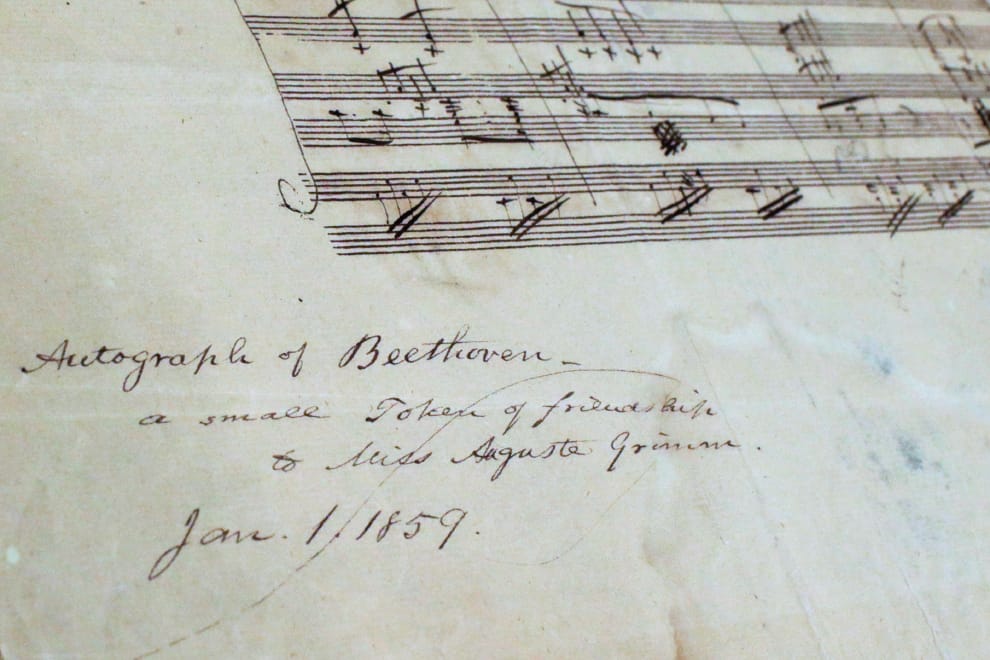 Autograph of Beethoven –
a small Token of friendship
to Miss Auguste Grimm.
Jan. 1. 1859.